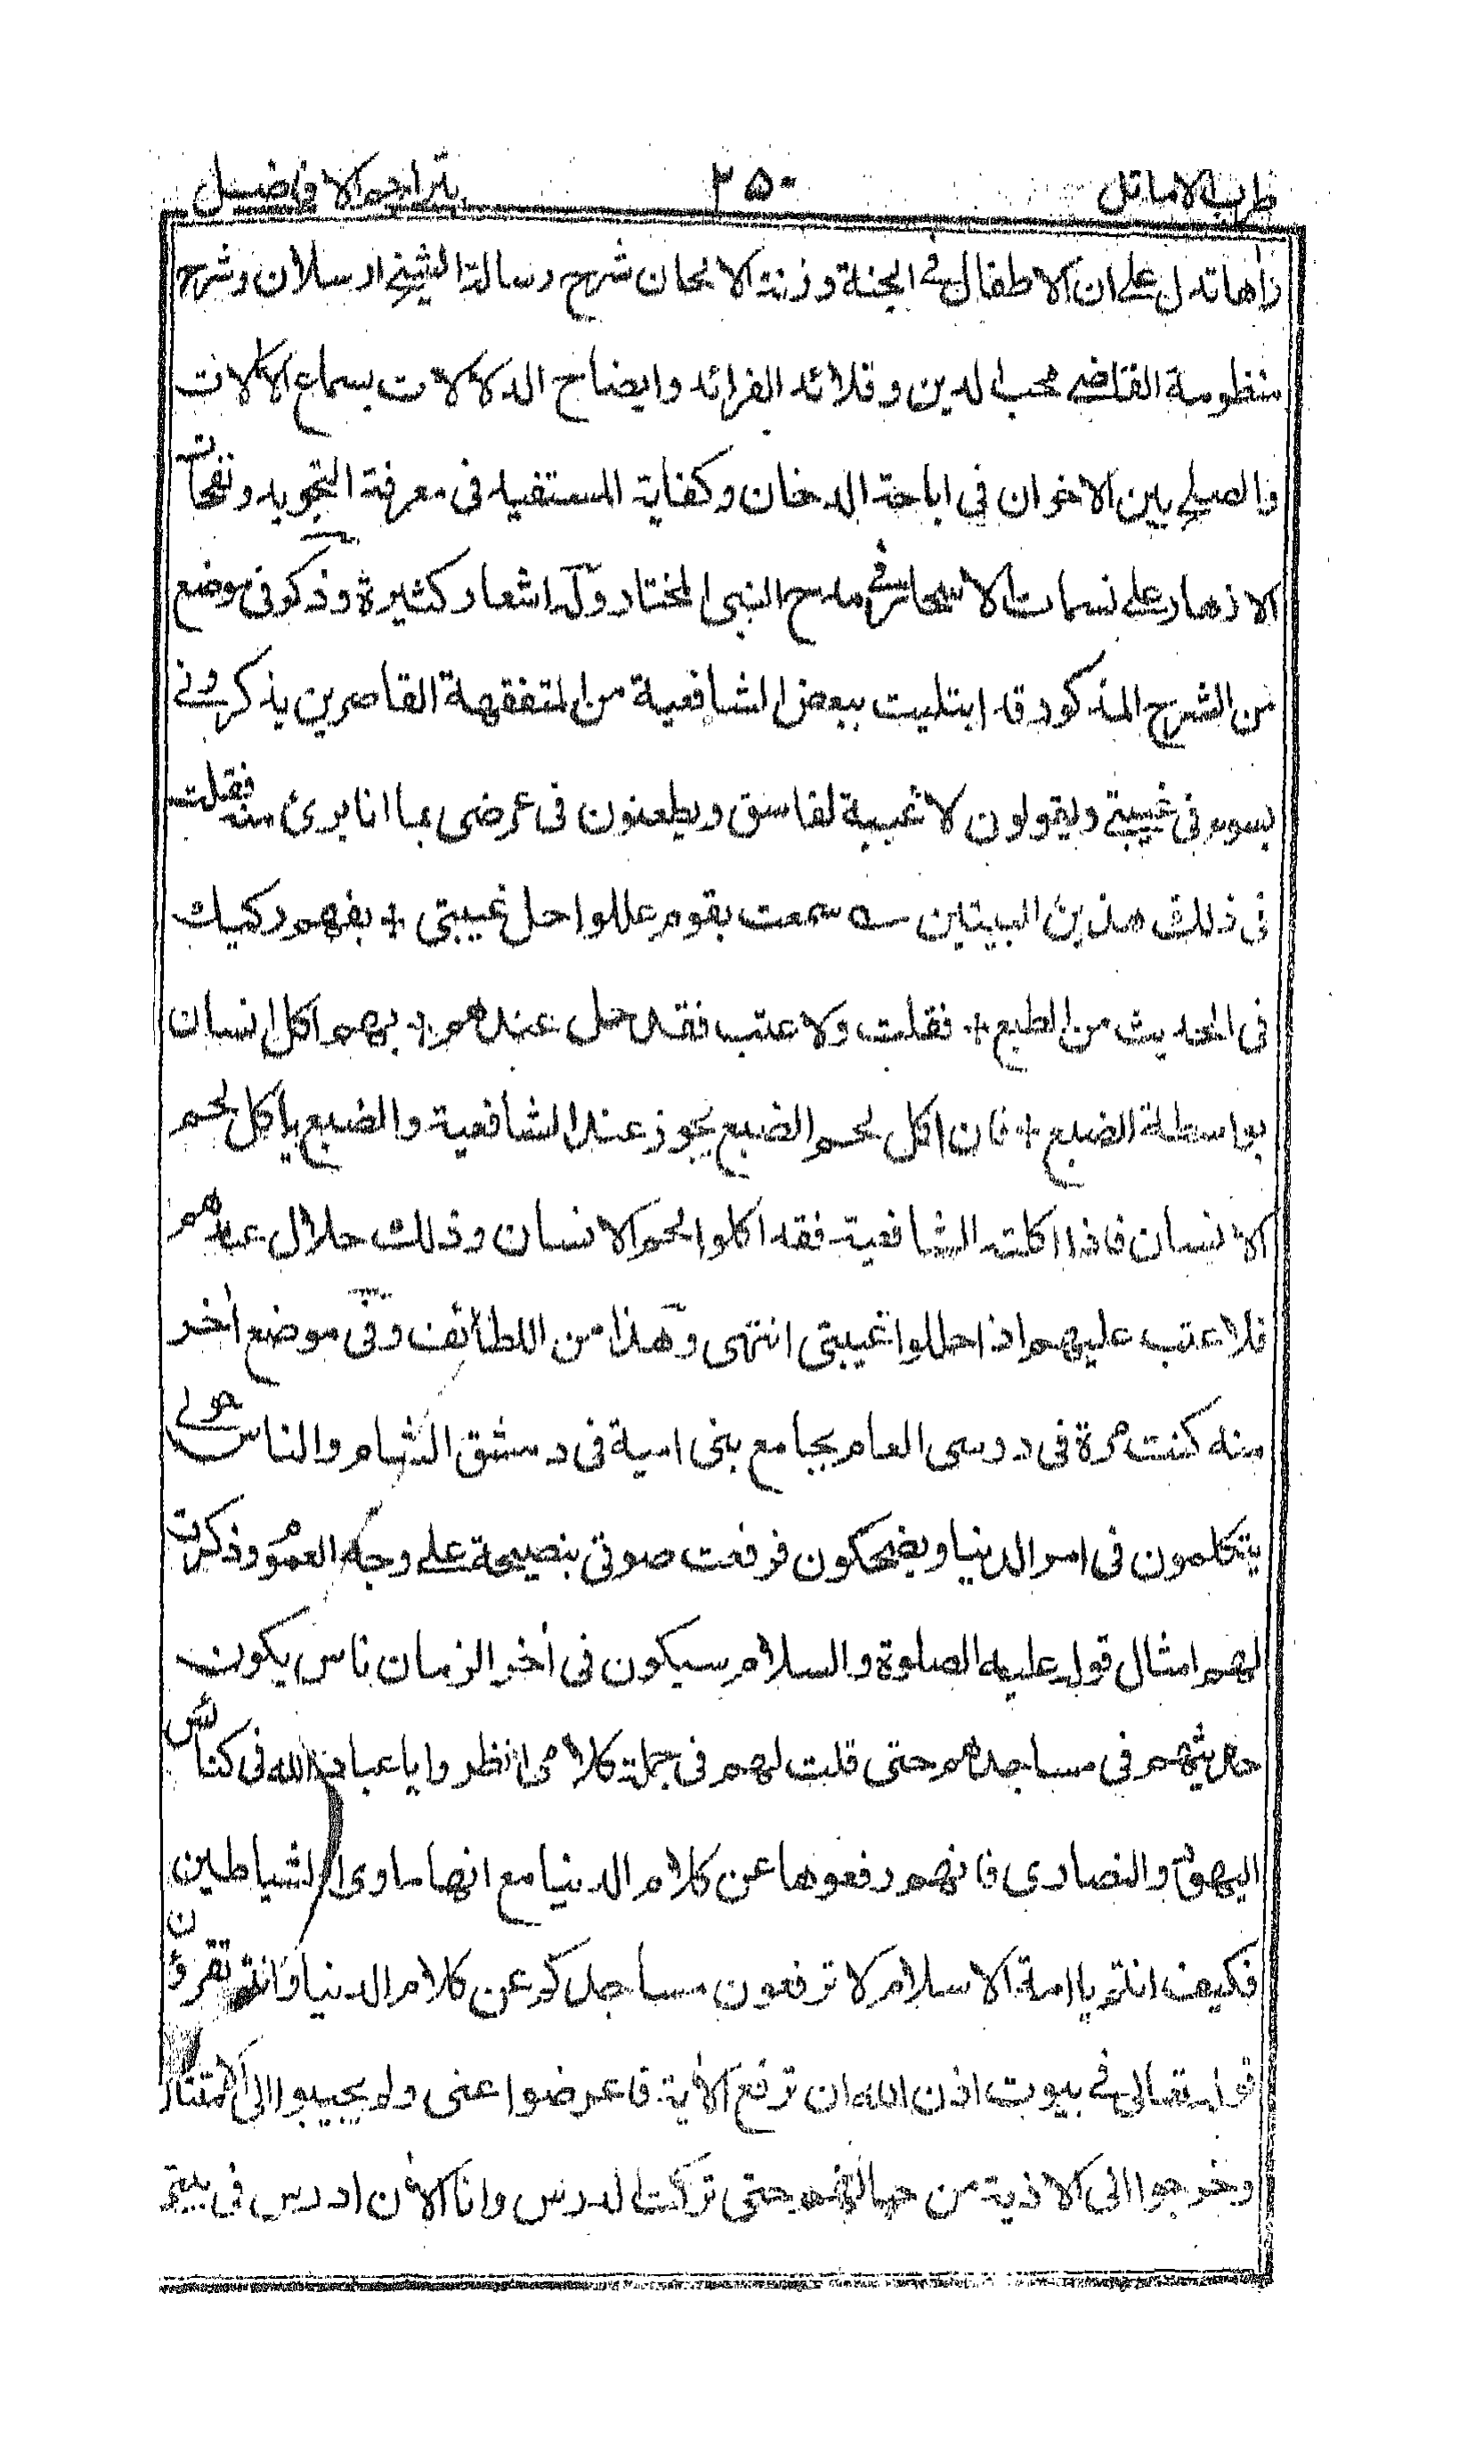 طرب الاماثل ٢٥٠ بتراجم الافاضل
راها تدل على ان الاطفال في الجنة و رنة الالحان شرح رسالة الشيخ ارسلان وشرح
منظومة القاضي محب الدين و قلائد الفرائد وايضاح الدلالات بسماع الالات
والصلح بين الاخوان فى اباحة الدخان و كفاية المستفيد فى معرفة التجويد ونفحات
الازهار على نسمات الاسحار في مدح النبى المختار وله اشعار كثيرة وذكر فى موضع
من الشرح المذكور قد ابتليت ببعض الشافعية من المتفقهة القاصرين يذكرونى
بسوء فى غيبتى ويقولون لا غيبة لفاسق ويطعنون فى عرضى بما انا برئ منه فقلت
فى ذلك هذين البيتين سه سمعت بقوم عللوا حل غيبتى + بفهم ركيك
فى الحديث من الطبع + فقلت ولا عتب فقد حل عندهم + لهم اكل انسان
بواسطة الضبع + فان اكل لحم الضبع يجوز عند الشافعية والضبع ياكل لحم
الانسان فاذا اكلته الشافعية فقد اكلوا لحم الانسان وذلك حلال عندهم
فلا عتب عليهم اذا حللوا غيبتى انتهى وهذا من اللطائف وفى موضع أخر
منه كنت مرة فى درسى العام بجامع بنى امية فى دمشق الشام والناس حولى
يتكلمون فى امر الدنيا ويضحكون فرفعت صوتى بنصيحة على وجه العموم وذكرت
لهم امثال قوله عليه الصلوة والسلام سيكون فى أخر الزمان ناس يكون
حديثهم فى مساجدهم حتى قلت لهم فى جملة كلامى انظروا يا عباد الله فى كنائس
اليهود والنصارى فانهم رفعوها عن كلام الدنيا مع انها ماوى الشياطين
فكيف انتم ياامة الاسلام لا ترفعون مساجدكم عن كلام الدنيا وانتم تقرؤن
قوله تعالى في بيوت اذن الله ان ترفع الأية فاعرضوا عنى ولم يجيبوا الى الامتثال
وخرجوا الى الاذية من حتى تركت الدرس وانا الأن ادرس فى بيتى